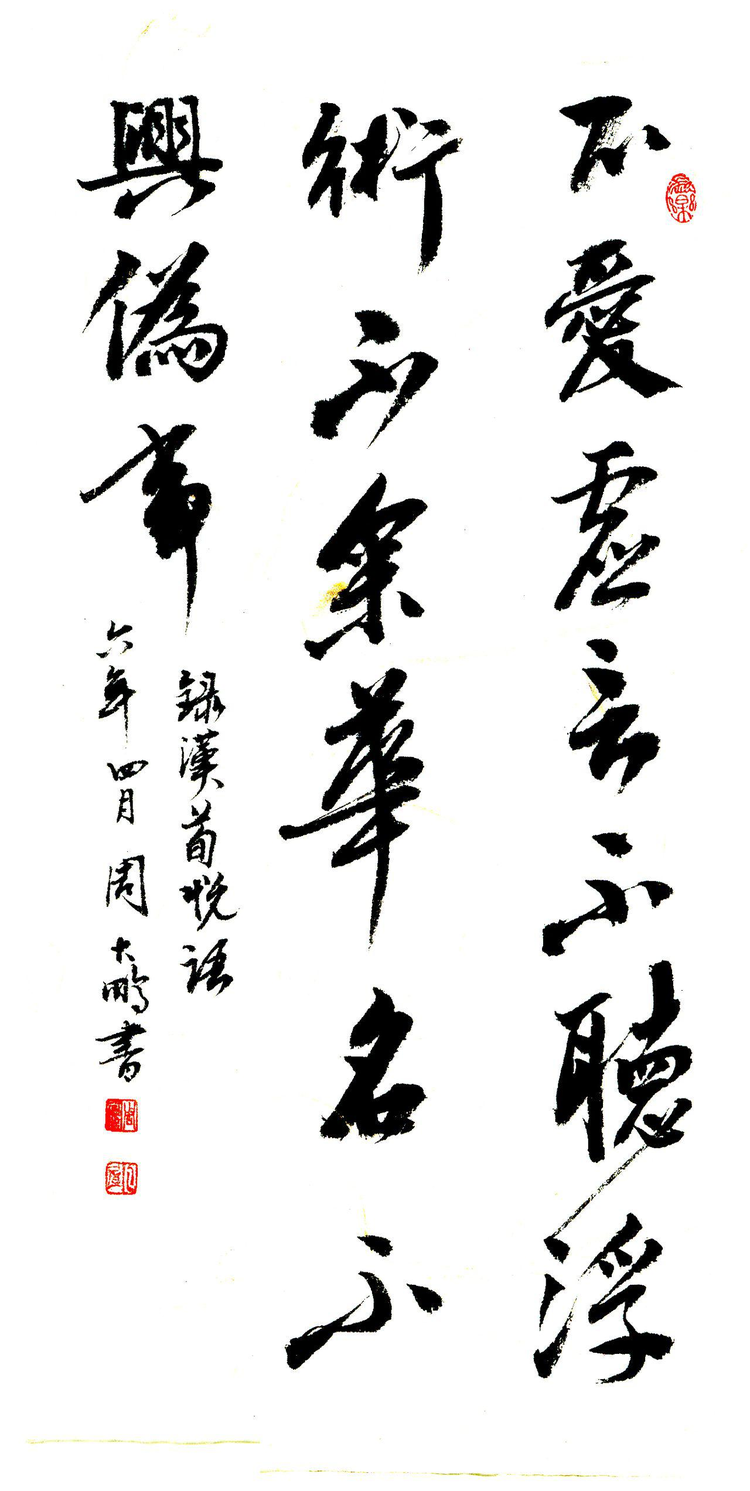 不愛虛言不聽浮
術不采華名不
興偽事
錄漢荀悅語
六年四月周大鵬書